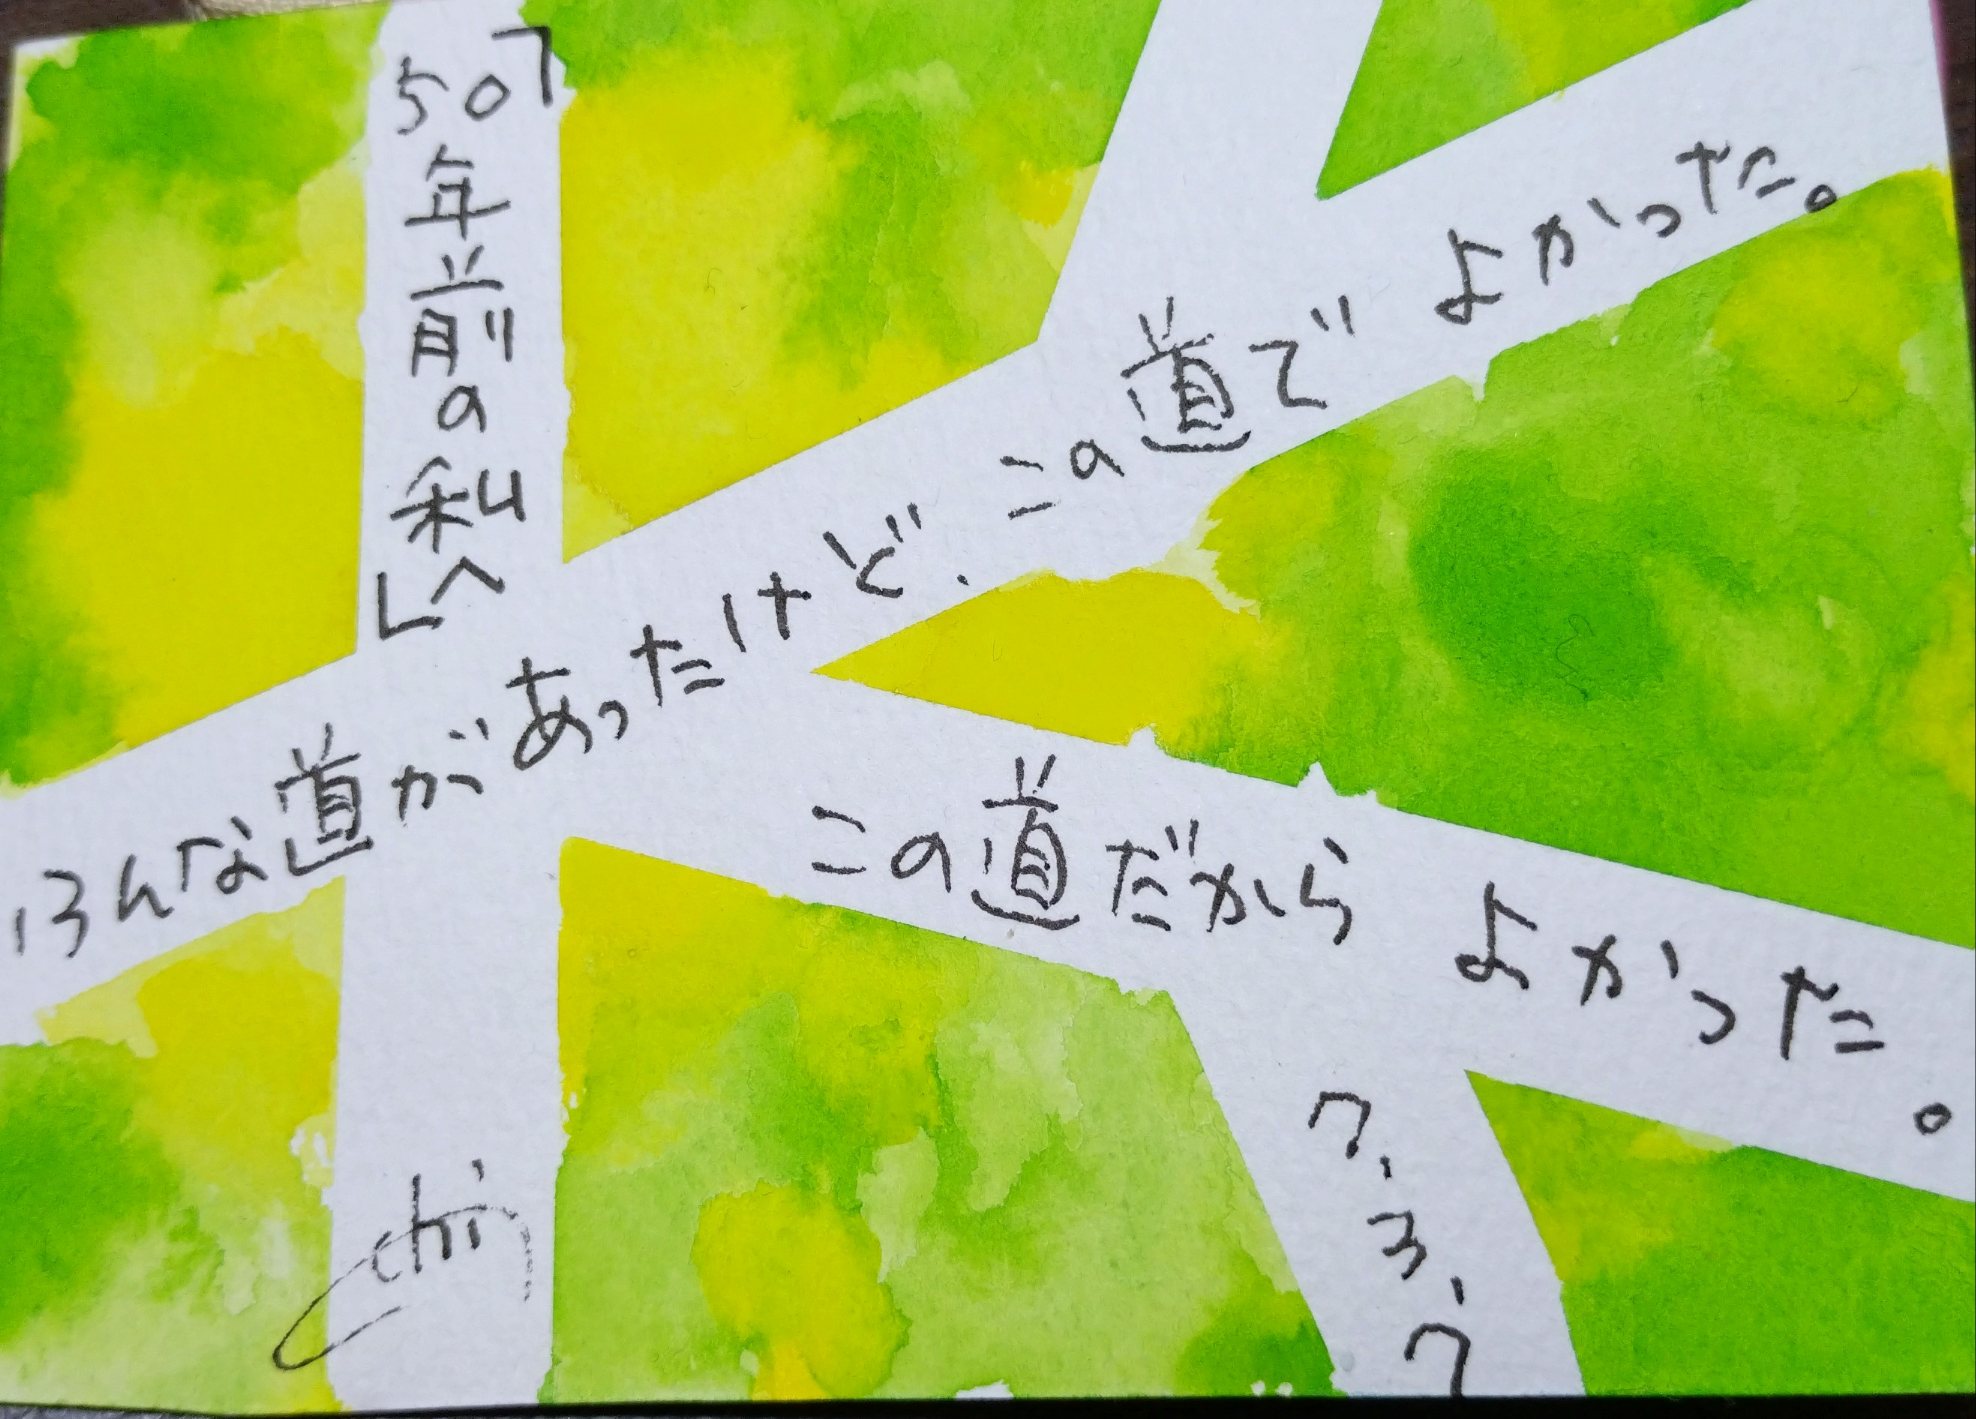 「50年前の私へ」
いろんな道があったけど、この道でよかった。
この道だからよかった。
7.3.7
chii